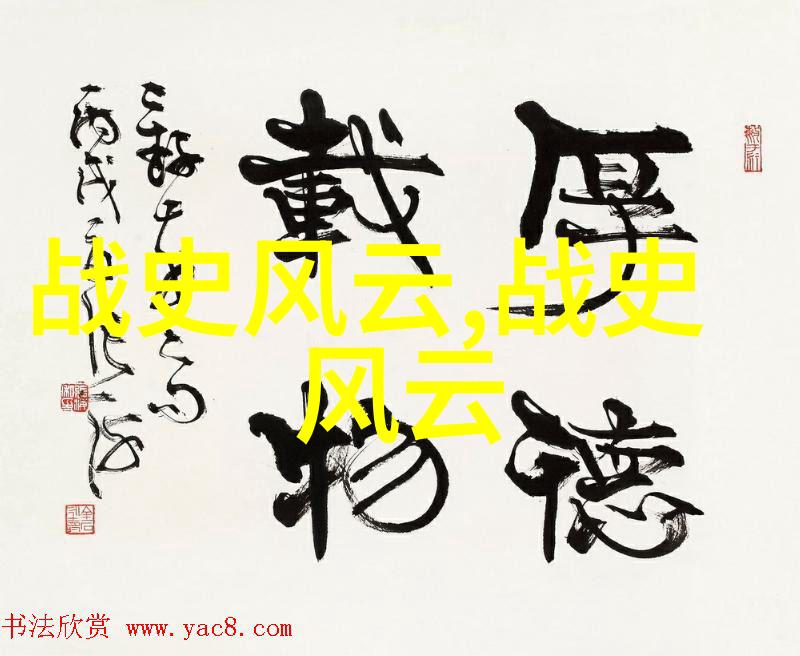 战史风云,战史
风云
厚德
載物
丙戌
书法欣赏 www.yac8.com